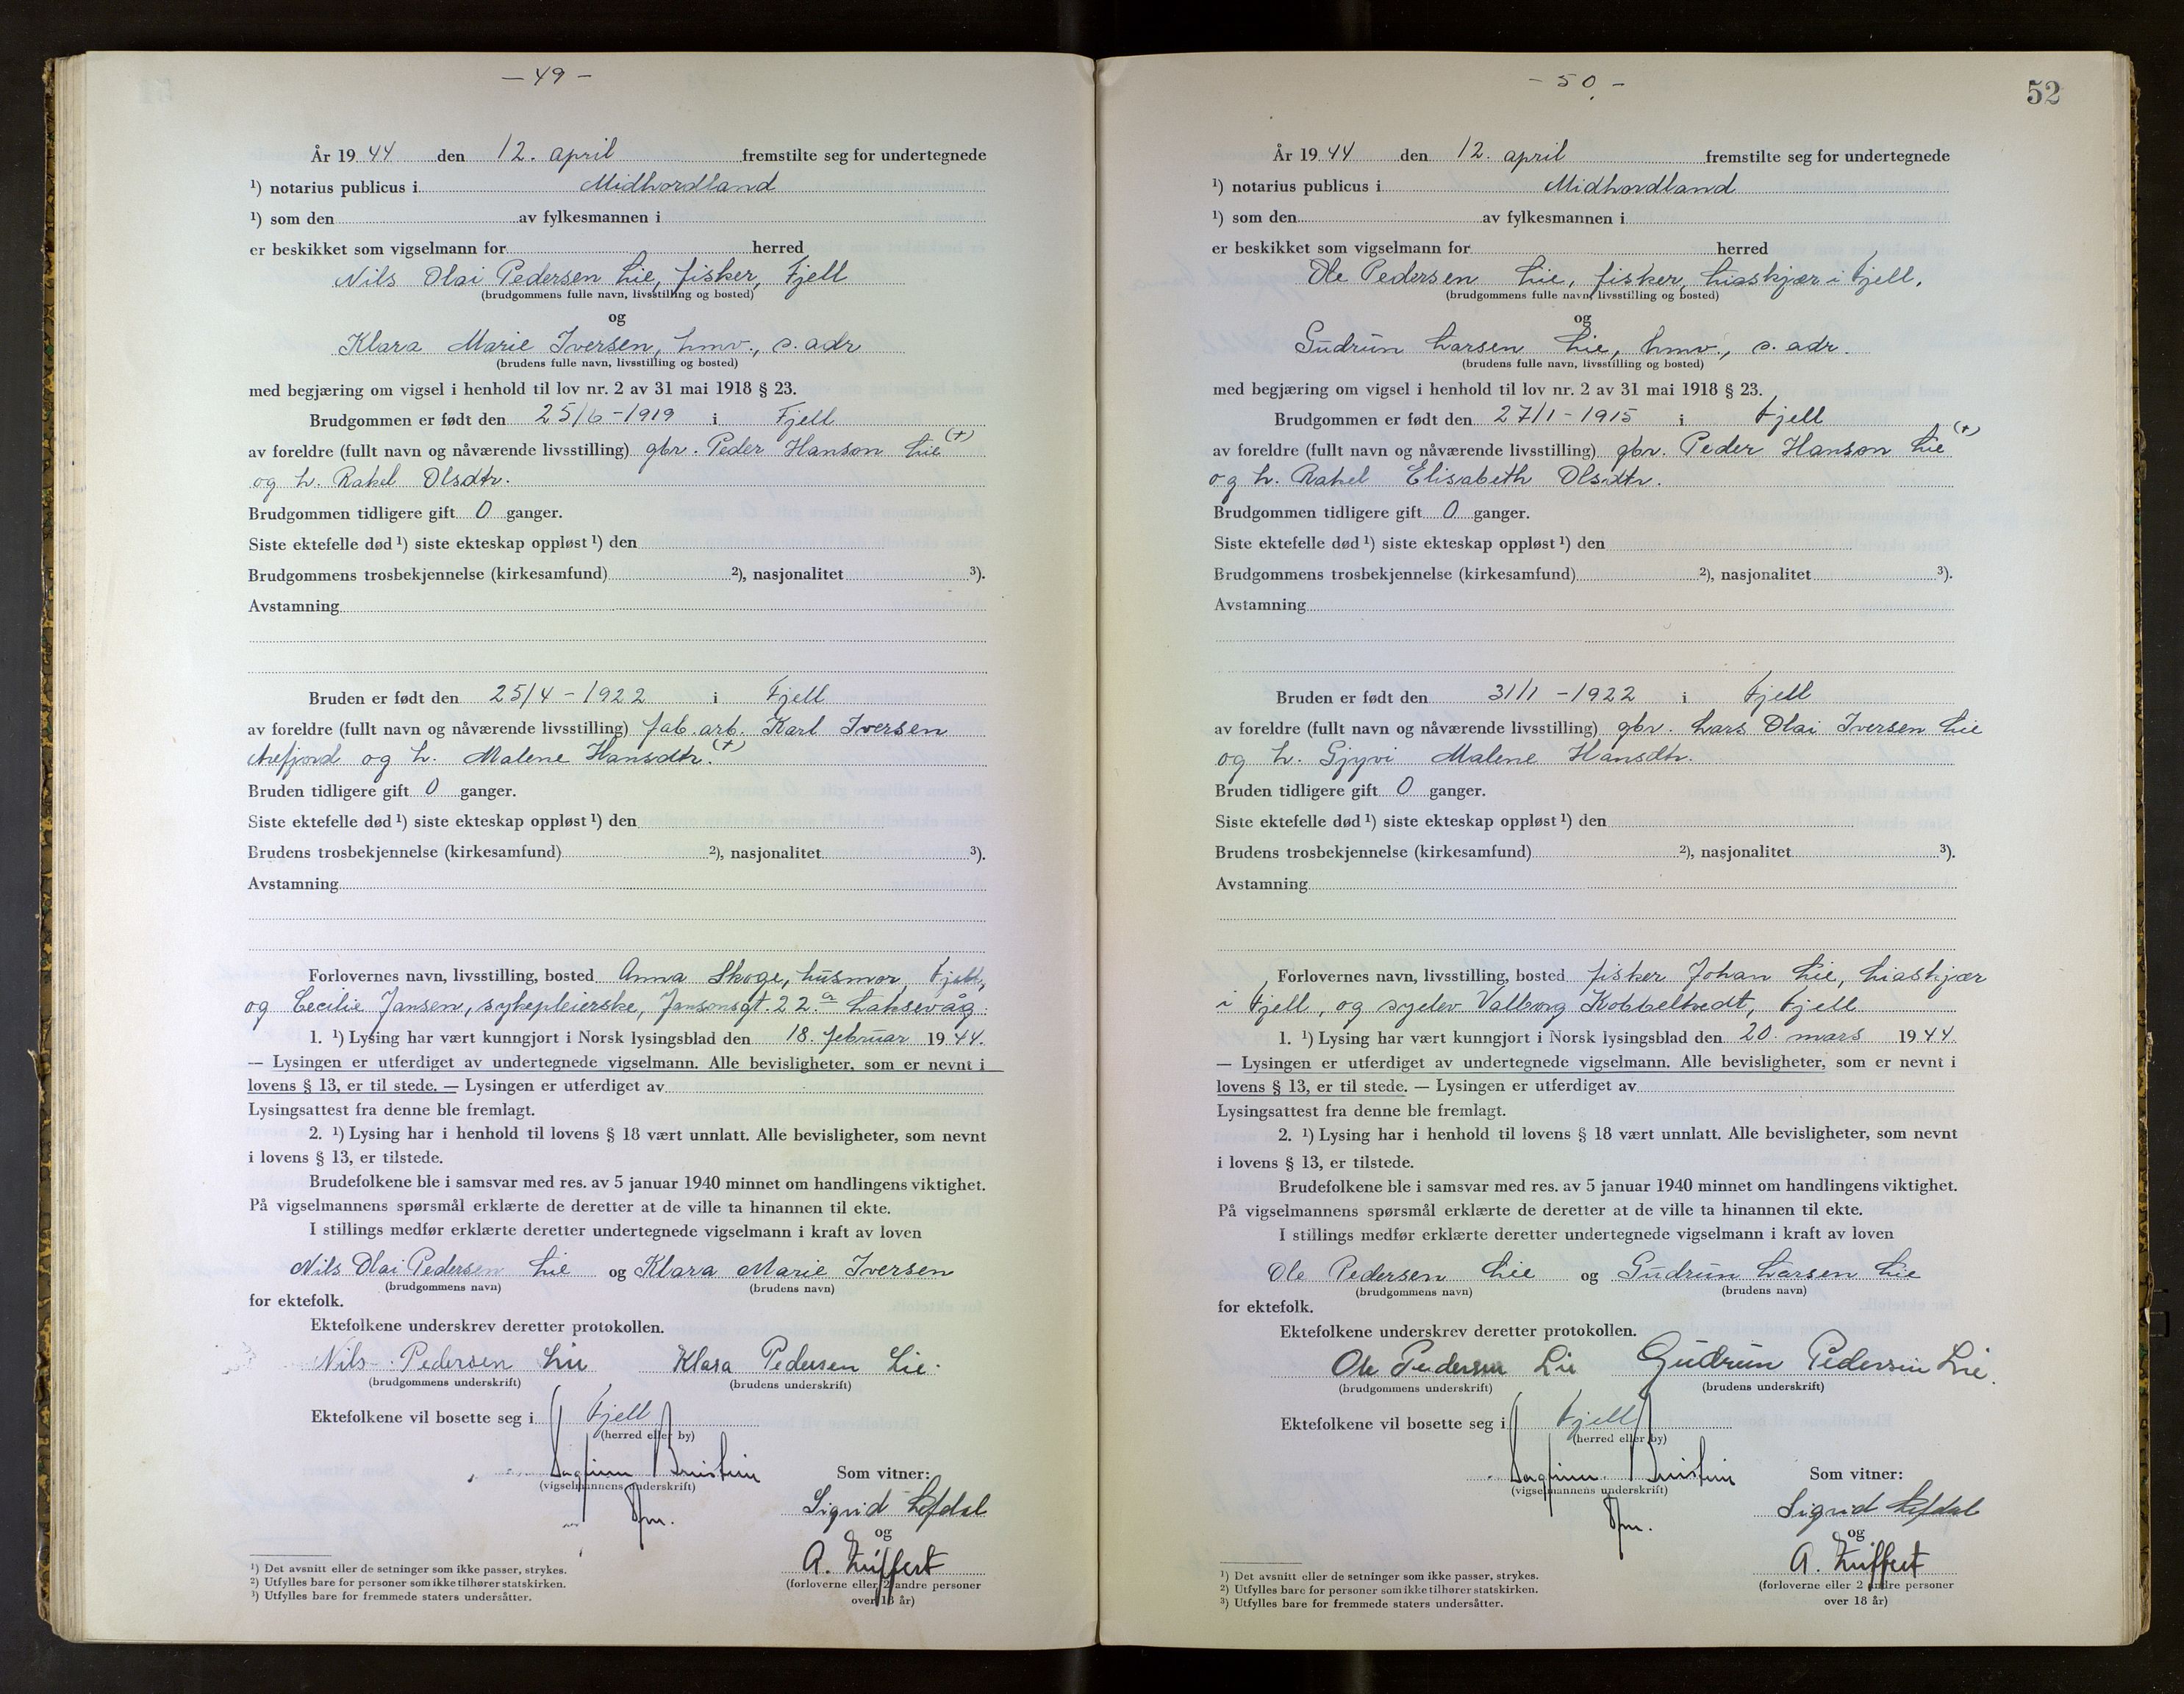 — 49 —
År 1944 den 12. april fremstilte seg for undertegnede
¹) notarius publicus i Midhordland
¹) som den av fylkesmannen i
er beskikket som vigselmann for herred
Nils Olai Pedersen Lie, fisker, Fjell
(brudgommens fulle navn, livsstilling og bosted)
og
Klara Marie Iversen, hmv., s. adr
(brudens fulle navn, livsstilling og bosted)
med begjæring om vigsel i henhold til lov nr. 2 av 31 mai 1918 § 23.
Brudgommen er født den 25/6 - 1919 i Fjell
av foreldre (fullt navn og nåværende livsstilling) gbr. Peder Hanson Lie (+)
og h. Rakel Olsdtr.
Brudgommen tidligere gift 0 ganger.
Siste ektefelle død ¹) siste ekteskap oppløst ¹) den
Brudgommens trosbekjennelse (kirkesamfund) ²), nasjonalitet ³).
Avstamning
Bruden er født den 25/4 - 1922 i Fjell
av foreldre (fullt navn og nåværende livsstilling) fab. arb. Karl Iversen
Arefjord og h. Malene Hansdtr. (+)
Bruden tidligere gift 0 ganger.
Siste ektefelle død ¹) siste ekteskap oppløst ¹) den
Brudens trosbekjennelse (kirkesamfund) ²), nasjonalitet ³).
Avstamning
Forlovernes navn, livsstilling, bosted Anna Skoge, husmor, Fjell,
og Cecilie Jansen, sykepleierske, Jansonsgt. 22.a Laksevåg.
1. ¹) Lysing har vært kunngjort i Norsk lysingsblad den 18. februar 1944.
— Lysingen er utferdiget av undertegnede vigselmann. Alle bevisligheter, som er nevnt i
lovens § 13, er til stede. — Lysingen er utferdiget av
Lysingsattest fra denne ble fremlagt.
2. ¹) Lysing har i henhold til lovens § 18 vært unnlatt. Alle bevisligheter, som nevnt
i lovens § 13, er tilstede.
Brudefolkene ble i samsvar med res. av 5 januar 1940 minnet om handlingens viktighet.
På vigselmannens spørsmål erklærte de deretter at de ville ta hinannen til ekte.
I stillings medfør erklærte deretter undertegnede vigselmann i kraft av loven
Nils Olai Pedersen Lie og Klara Marie Iversen
(brudgommens navn) (brudens navn)
for ektefolk.
Ektefolkene underskrev deretter protokollen.
Nils Pedersen Lie Klara Pedersen Lie.
(brudgommens underskrift) (brudens underskrift)
Ektefolkene vil bosette seg i Fjell
(herred eller by)
Som vitner:
(vigselmannens underskrift)
Sigrid Lofdal
og
A.
(forloverne eller 2 andre personer
over 18 år)
¹) Det avsnitt eller de setninger som ikke passer, strykes.
²) Utfylles bare for personer som ikke tilhører statskirken.
³) Utfylles bare for fremmede staters undersåtter.
- 50 -
52
År 1944 den 12. april fremstilte seg for undertegnede
¹) notarius publicus i Midhordland
¹) som den av fylkesmannen i
er beskikket som vigselmann for herred
Ole Pedersen Lie, fisker, Liaskjær i Fjell.
(brudgommens fulle navn, livsstilling og bosted)
og
Gudrun Larsen Lie, hmv., s. adr.
(brudens fulle navn, livsstilling og bosted)
med begjæring om vigsel i henhold til lov nr. 2 av 31 mai 1918 § 23.
Brudgommen er født den 27/1 - 1915 i Fjell
av foreldre (fullt navn og nåværende livsstilling) gbr. Peder Hanson Lie (+)
og h. Rakel Elisabeth Olsdtr.
Brudgommen tidligere gift 0 ganger.
Siste ektefelle død ¹) siste ekteskap oppløst ¹) den
Brudgommens trosbekjennelse (kirkesamfund) ²), nasjonalitet ³).
Avstamning
Bruden er født den 31/1 - 1922 i Fjell
av foreldre (fullt navn og nåværende livsstilling) gbr. Lars Olai Iversen Lie
og h. Gjyvi Malene Hansdtr.
Bruden tidligere gift 0 ganger.
Siste ektefelle død ¹) siste ekteskap oppløst ¹) den
Brudens trosbekjennelse (kirkesamfund) ²), nasjonalitet ³).
Avstamning
Forlovernes navn, livsstilling, bosted fisker Johan Lie, Liaskjær
i Fjell, og syelev Valborg Kobbeltvedt, Fjell
1. ¹) Lysing har vært kunngjort i Norsk lysingsblad den 20. mars 1944.
— Lysingen er utferdiget av undertegnede vigselmann. Alle bevisligheter, som er nevnt i
lovens § 13, er til stede. — Lysingen er utferdiget av
Lysingsattest fra denne ble fremlagt.
2. ¹) Lysing har i henhold til lovens § 18 vært unnlatt. Alle bevisligheter, som nevnt
i lovens § 13, er tilstede.
Brudefolkene ble i samsvar med res. av 5 januar 1940 minnet om handlingens viktighet.
På vigselmannens spørsmål erklærte de deretter at de ville ta hinannen til ekte.
I stillings medfør erklærte deretter undertegnede vigselmann i kraft av loven
Ole Pedersen Lie og Gudrun Larsen Lie
(brudgommens navn) (brudens navn)
for ektefolk.
Ektefolkene underskrev deretter protokollen.
Ole Pedersen Lie Gudrun Pedersen Lie.
(brudgommens underskrift) (brudens underskrift)
Ektefolkene vil bosette seg i Fjell
(herred eller by)
Som vitner:
(vigselmannens underskrift)
Sigrid Lofdal
og
A.
(forloverne eller 2 andre personer
over 18 år)
¹) Det avsnitt eller de setninger som ikke passer, strykes.
²) Utfylles bare for personer som ikke tilhører statskirken.
³) Utfylles bare for fremmede staters undersåtter.